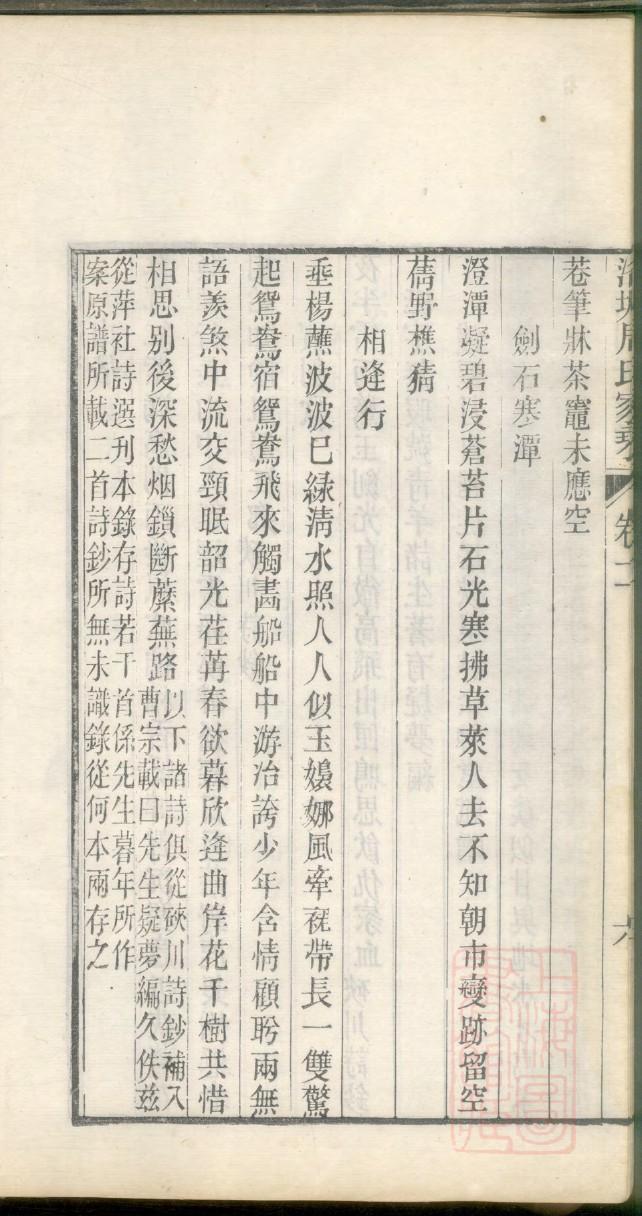 卷二
六
卷筆牀茶竈未應空
劍石寒潭
澄潭凝碧浸蒼苔片石光寒拂草萊人去不知朝市變跡留空
蒨野樵猜
相逢行
垂楊蘸波波已綠清水照人人似玉嬝娜風牽裾帶長一雙驚
起鴛鴦宿鴛鴦飛來觸畵船船中游冶誇少年含情顧盻兩無
語羨煞中流交頸眠韶光荏苒春欲暮欣逢曲岸花千樹共惜
相思别後深愁烟鎖斷蘼蕪路
以下諸詩俱從硤川詩鈔補入
曹宗載曰先生疑夢編久佚兹
從萍社詩選刋本錄存詩若干首係先生暮年所作
案原譜所載二首詩鈔所無未識錄從何本兩存之